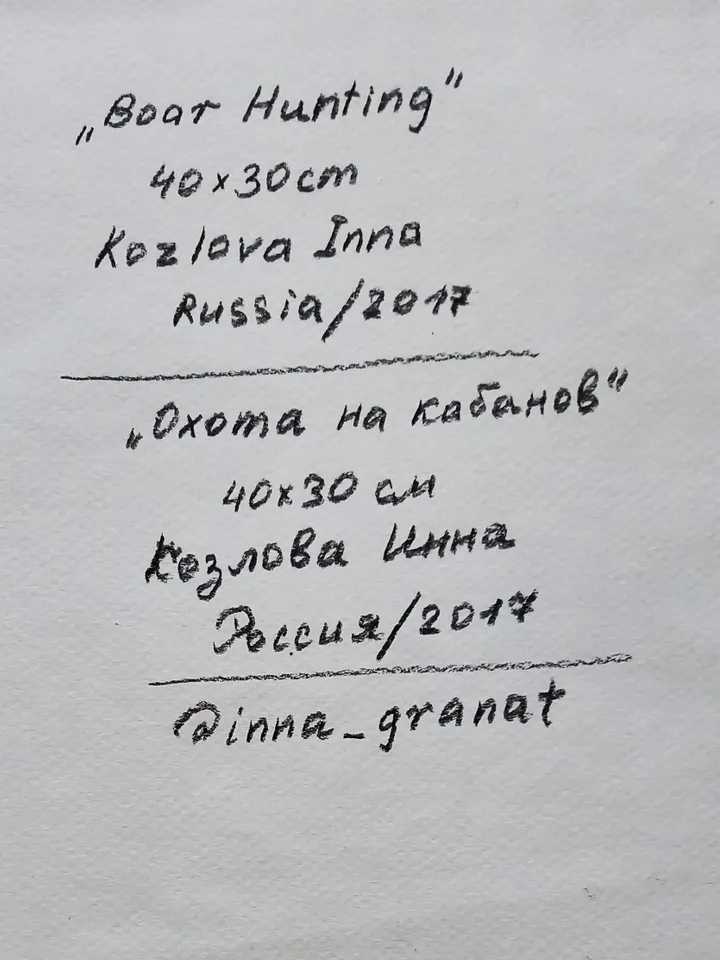 „Boar Hunting"
40x30cm
Kozlova Inna
Russia/2017
„Охота на кабанов"
40x30 см
Козлова Инна
Россия/2017
@inna_granat